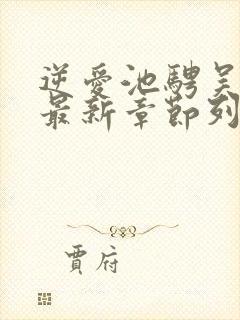 逆爱池骋吴
最新章节列
贾府